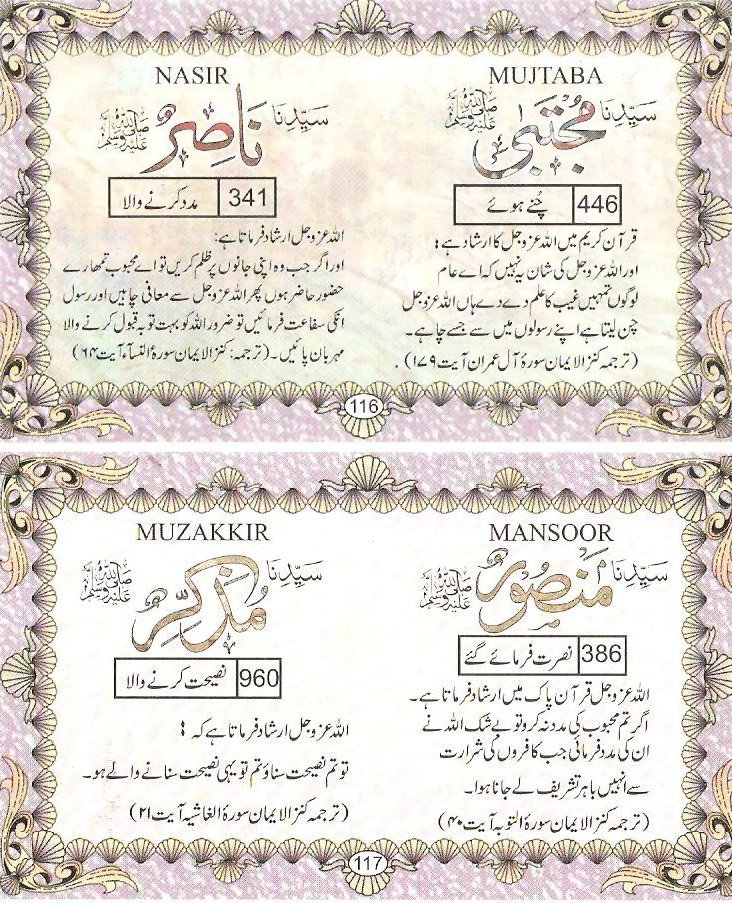 MUJTABA
سَیِّدِنَا مُجْتَبٰی ﷺ
446 چُنے ہوئے
قرآن کریم میں اللہ عزوجل کا ارشاد ہے؛
اور اللہ عزوجل کی شان یہ نہیں کہ اے عام
لوگوں تمہیں غیب کا علم دے دے ہاں اللہ عزوجل
چن لیتا ہے اپنے رسولوں میں سے جسے چاہے۔
(ترجمہ کنز الایمان سورۂ آل عمران آیت ۱۷۹) .
NASIR
سَیِّدِنَا نَاصِرٌ ﷺ
341 مدد کرنے والا
اللہ عزوجل ارشاد فرماتا ہے:
اور اگر جب وہ اپنی جانوں پر ظلم کریں تو اے محبوب تمھارے
حضور حاضر ہوں پھر اللہ عزوجل سے معافی چاہیں اور رسول
انکی سفاعت فرمائیں تو ضرور اللہ کو بہت توبہ قبول کرنے والا
مہربان پائیں۔ (ترجمہ: کنز الایمان سورۂ النسآء آیت ۶۴)
116
MANSOOR
سَیِّدِنَا مَنْصُورٌ ﷺ
386 نصرت فرمائے گئے
اللہ عزوجل قرآن پاک میں ارشاد فرماتا ہے۔
اگر تم محبوب کی مدد نہ کرو تو بے شک اللہ نے
ان کی مدد فرمائی جب کافروں کی شرارت
سے انہیں باہر تشریف لے جانا ہوا۔
(ترجمہ کنز الایمان سورۂ التوبہ آیت ۴۰)
MUZAKKIR
سَیِّدِنَا مُذَکِّرٌ ﷺ
960 نصیحت کرنے والا
اللہ عزوجل ارشاد فرماتا ہے کہ ؛
تو تم نصیحت سناؤ تم تو یہی نصیحت سنانے والے ہو۔
(ترجمہ کنز الایمان سورۂ الغاشیہ آیت ۲۱)
117